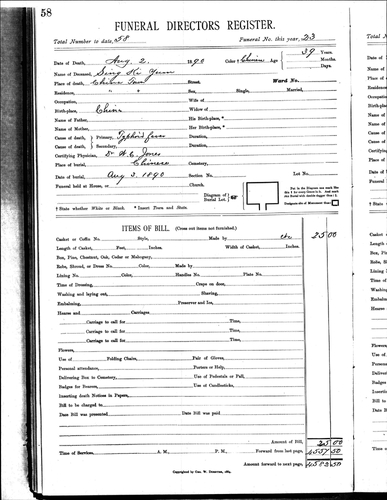 58
FUNERAL DIRECTORS REGISTER.
Total Number to date, 58 Funeral No. this year, 23
Date of Death, Aug 2. 1890 Color † Age 39 Years. Months. Days.
Name of Deceased, Sing Yuen
Place of death, Street. Ward No.
Residence, " " Sex, Single, Married,
Occupation, Wife of
Birthplace, Widow of
Name of Father, His Birth-place, *
Name of Mother, Her Birth-place, *
Cause of death, Primary, Typhoid fever
Cause of death, Secondary,
Certifying Physician, Dr. H.C. Jones
Place of burial, Chinese Cemetery,
Date of burial, Aug 3. 1890 Section No. Lot No.
Funeral held at House, or Church.
Diagram of Burial Lot,
† State whether White or Black. * Insert Town and State.
ITEMS OF BILL. (Cross out items not furnished.)
Casket or Coffin No. Style, Made by etc 25 00
Length of Casket, Feet, Inches. Width of Casket, Inches.
Box, Pine, Chestnut, Oak, Cedar or Mahogany,
Robe, Shroud, or Dress No. Color, Made by
Lining No. Color, Handles No. Plate No.
Time of Dressing, Crape on door,
Washing and laying out, Shaving,
Embalming, Preserver and Ice,
Hearse and Carriages.
Carriage to call for Time,
Carriage to call for Time,
Carriage to call for Time,
Flowers,
Use of Folding Chairs, Pair of Gloves,
Personal attendance, Porters or Help,
Delivering Box to Cemetery, Use of Pedestals or Pall,
Badges for Bearers, Use of Candlesticks,
Inserting death Notices in Papers,
Bill to be charged to
Date Bill was presented Date Bill was paid
Amount of Bill, 25 00
Time of Services, A. M., P. M., Forward from last page, 4557 50
Amount forward to next page,
Copyright by Geo. W.